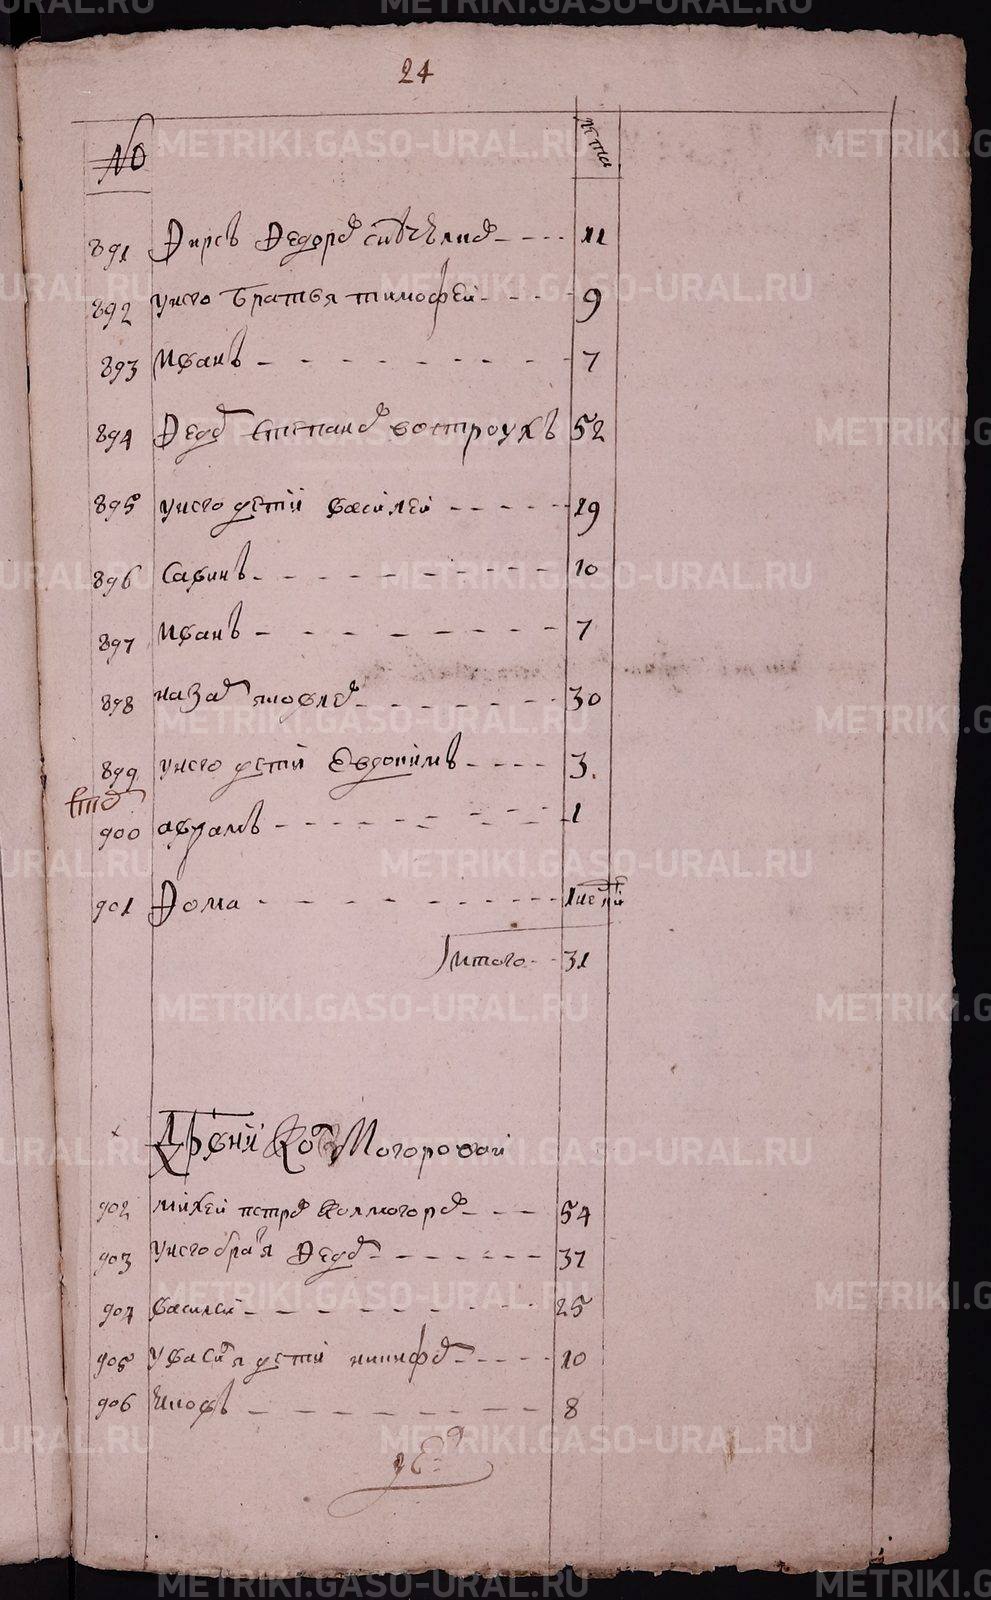 24
№ лѣта
891 Фирсъ Федоров сынъ 11
892 у него братья тимофей 9
893 Иванъ 7
894 Федор Степанов вострухъ 52
895 у него детй василей 19
896 Савинъ 10
897 Иванъ 7
898 назар яковлев 30
899 у него детй Евдокимъ 3
900 аврамъ 1
901 Фома 1 недѣли
Итого 31
Дрвни Колмогоровой
902 михей петров Колмогоров 54
903 у него братя Федор 37
904 василей 25
905 у василя детй никифор 10
906 Яковъ 8
METRIKI.GASO-URAL.RU